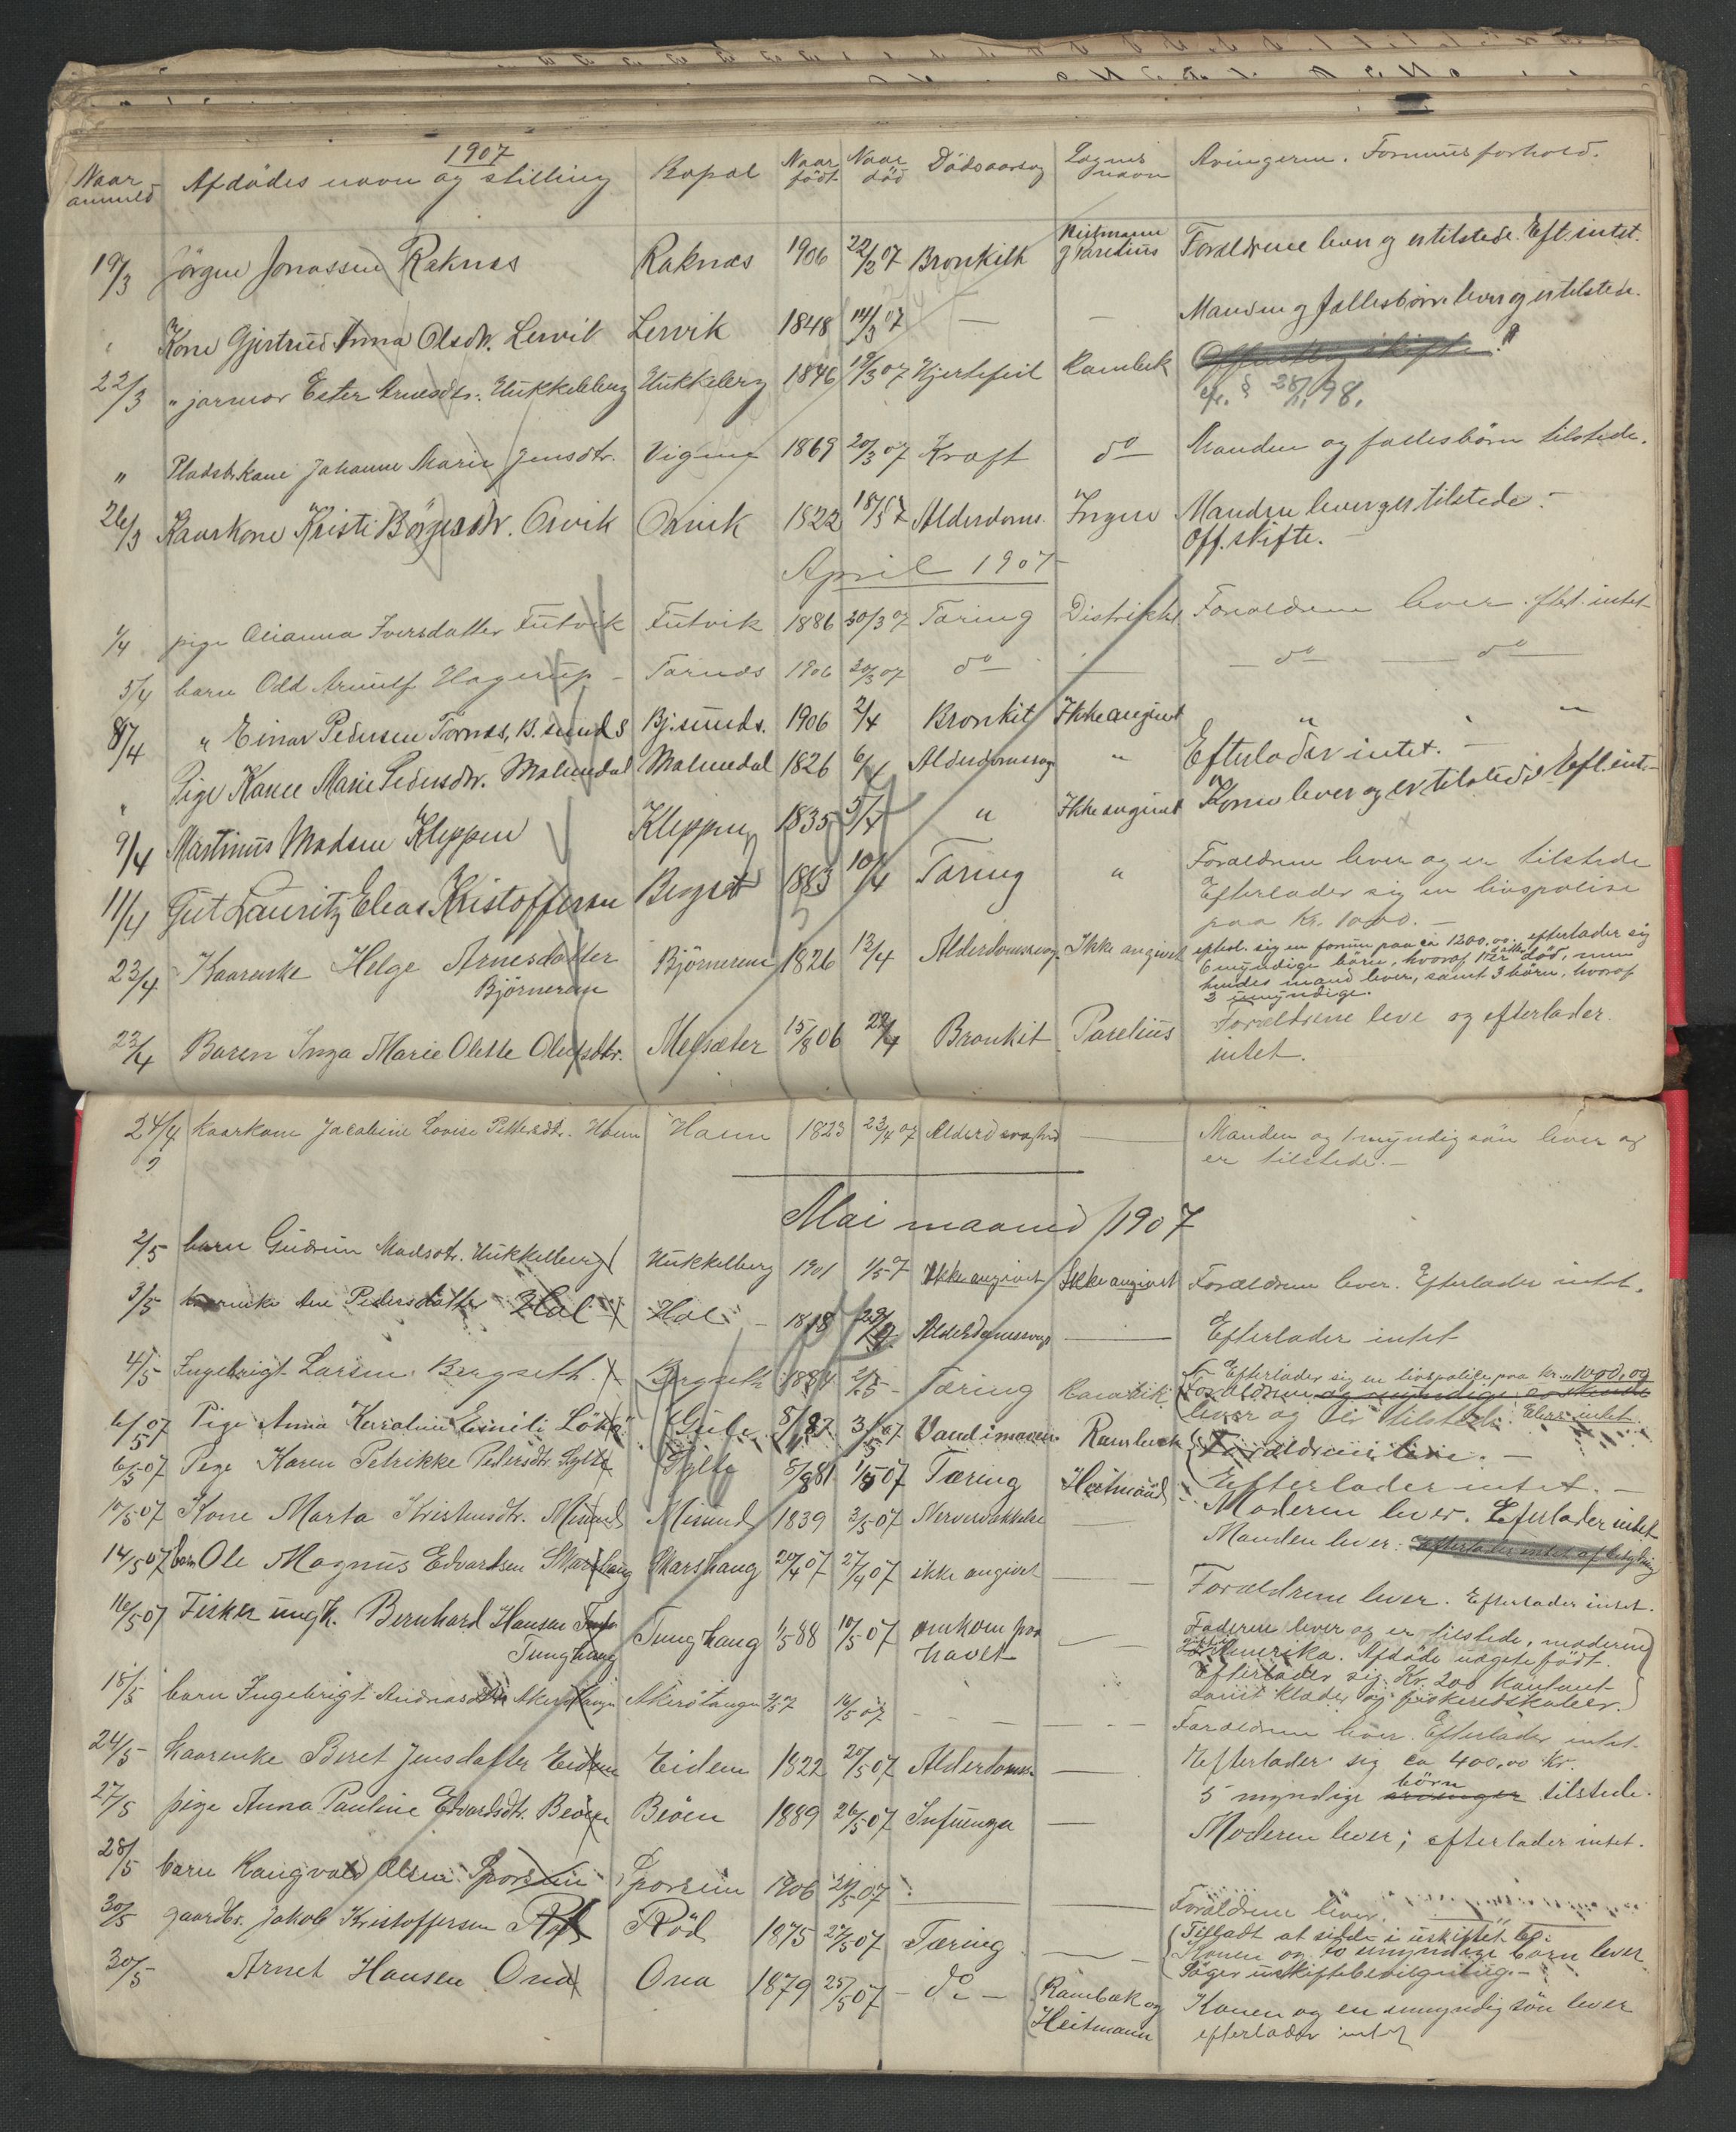 1907
Naar anmeld Afdødes navn og stilling Bopæl Naar født Naar død Dödsaarsag Lægens navn Arvingerne. Formuesforhold.
19/3 Jörgen Jonassen Raknes Raknæs 1906 22/2 07 Bronkith Heitmann og Parelius Forældrene lever og er tilstede. Eft. intet.
" Kone Gjertrud Anna Olsdtr. Lervik Lervik 1848 14/3 07 — — Manden og fællesbörn lever og er tilstede.
22/3 " jormor Ester Arnesdtr. Hukkelberg Hukkelberg 1846 19/3 07 Hjertefeil Rambek Offentlig skifte?
cfr. § 28/1 98.
" Pladsbr.kone Johanne Marie Jensdtr. 1869 20/3 07 Kræft do Manden og fællesbörn tilstede.
26/3 Kaarkone Kristi Börgesdtr. Orvik Orvik 1822 18/3 07 Alderdoms. Ingen Manden lever og er tilstede.
Off. skifte.
April 1907
1/4 pige Olianna Iversdatter Futvik Futvik 1886 30/3 07 Tæring Distriktsl. Forældrene lever. Efterl. intet
5/4 barn Odd Arnulf Hagerup - Tornæs 1906 30/3 07 do — — do — do —
8/4 " Einar Pedersen Tornæs, B. sund Bj.sunds. 1906 2/4 Bronkit Ikke angivet " "
" Pige Karen Marie Pedersdtr. Malmedal Malmedal 1826 6/4 Alderdomssvag " Efterlader intet. —
9/4 Martinus Madsen Kleppen Kleppen 1835 5/4 " Ikke angivet Konen lever og er tilstede. Eft. int.
11/4 Gut Lauritz Elias Kristoffersen Bergset 1883 10/4 Tæring " Forældrene lever og er tilstede
Efterlader sig en livspolise
paa Kr. 1000. —
23/4 Kaarenke Helge Arnesdatter Björnerem Björnerem 1826 13/4 Alderdomssvag. Ikke angivet efterl. sig en formue paa ca 1200,00, efterlader sig
6 myndige börn, hvoraf 1 er död, men
hendes mand lever, samt 3 börn, hvoraf
3 umyndige.
23/4 Baren Inga Marie Olette Olufsdtr. Meisæter 15/8 06 22/4 Bronkit Parelius Forældrene leve og efterlader
intet.
24/4 kaarkone Jacobine Lovise Pettersdtr. Hamn Hamn 1823 23/4 07 — Manden og 1 myndig sön lever og
er tilstede. —
Mai maaned 1907
2/5 barn Gudrun Madsdtr. Hukkelberg Hukkelberg 1901 1/5 07 Ikke angivet Ikke angivet Forældrene lever. Efterlader intet.
3/5 kaarenke Ane Pedersdatter Hol Hol 1818 Alderdomssvag — Efterlader intet
4/5 Ingebrigt Larsen Bergseth. Bergseth 1884 2/5 - Tæring Rambæk Efterlader sig en livspolise paa kr. 1000, og
Forældrene og myndige
lever og er tilstede. Ellers intet.
6/5 07 Pige Anna Emilie 3/5 07 Rambæk Forældrene leve. —
6/5 07 Pige Karen Petrikke Pedersdtr Sylte Sylte 8/8 81 1/5 07 Tæring Heitmann Efterlader intet. —
Moderen lever. Efterlader intet
10/5 07 Kone Marta Kristensdtr. Misund Misund 1839 3/5 07 Nervesvækkelse — Manden lever.
14/5 07 barn Ole Magnus Edvardsen Skarshaug Skarshaug 20/4 07 27/4 07 ikke angivet — Forældrene lever. Efterlader intet.
16/5 07 Fisker ungk. Bernhard Hansen Tunghaug Tunghaug 1/5 88 10/5 07 omkom paa havet — Faderen lever og er tilstede, moderen
i Amerika. Afdöde uægte født.
Efterlader sig Kr. 200 kontant
samt klæder og fiskeredskaber.
18/5 barn Ingebrigt Andreas Akerötangen Akerötangen 16/5 07 — — Forældrene lever. Efterlader intet
24/5 kaarenke Beret Jensdatter Eidem Eidem 1822 20/5 07 Alderdoms. — Efterlader sig ca 400,00 kr.
5 myndige arvinger börn tilstede.
27/5 pige Anna Pauline Edvardsdtr. Beöen Beöen 1889 26/5 07 Influenza — Moderen lever; efterlader intet.
28/5 barn Rangvald Olsen Sporsem Sporsem 1906 24/5 07 — — Forældrene lever.
30/5 gaardbr. Jakob Kristoffersen Röd Röd 1875 27/5 07 Tæring — Tilladt at sidde i uskiftet bo.
Konen og 10 umyndige börn lever
Söger uskiftebevilgning. —
30/5 Arnet Hansen Ona Ona 1879 25/5 07 - do - Rambæk og Heitmann Konen og en umyndig sön lever
efterlader intet